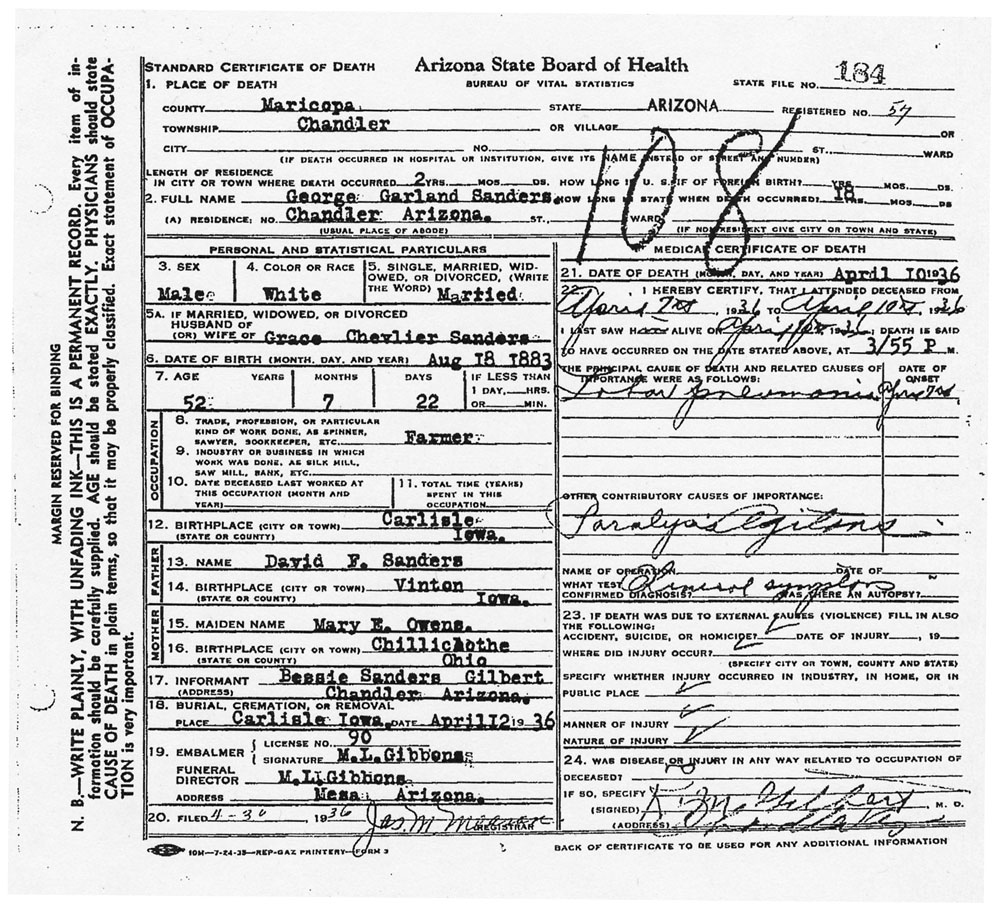 MARGIN RESERVED FOR BINDING
N. B.—WRITE PLAINLY, WITH UNFADING INK—THIS IS A PERMANENT RECORD. Every item of in-
formation should be carefully supplied. AGE should be stated EXACTLY. PHYSICIANS should state
CAUSE OF DEATH in plain terms, so that it may be properly classified. Exact statement of OCCUPA-
TION is very important.
STANDARD CERTIFICATE OF DEATH Arizona State Board of Health
184
1. PLACE OF DEATH BUREAU OF VITAL STATISTICS STATE FILE NO.
COUNTY Maricopa STATE ARIZONA REGISTERED NO. 57
TOWNSHIP Chandler OR VILLAGE OR
CITY NO. ST. WARD
(IF DEATH OCCURRED IN HOSPITAL OR INSTITUTION, GIVE ITS NAME INSTEAD OF STREET AND NUMBER)
108
LENGTH OF RESIDENCE
IN CITY OR TOWN WHERE DEATH OCCURRED 2 YRS. MOS. DS. HOW LONG IN U. S. IF OF FOREIGN BIRTH? YRS. MOS. DS.
2. FULL NAME George Garland Sanders. HOW LONG STATE WHEN DEATH OCCURRED? 18 YRS. MOS. DS
(A) RESIDENCE: NO. Chandler Arizona. ST., WARD
(USUAL PLACE OF ABODE) (IF NON-RESIDENT GIVE CITY OR TOWN AND STATE)
PERSONAL AND STATISTICAL PARTICULARS
3. SEX Male
4. COLOR OR RACE White
5. SINGLE, MARRIED, WID-
OWED, OR DIVORCED, (WRITE
THE WORD) Married
5A. IF MARRIED, WIDOWED, OR DIVORCED
HUSBAND OF
(OR) WIFE OF Grace Chevlier Sanders
6. DATE OF BIRTH (MONTH, DAY, AND YEAR) Aug 18 1883
7. AGE YEARS MONTHS DAYS IF LESS THAN
1 DAY, HRS.
52 7 22 OR MIN.
OCCUPATION
8. TRADE, PROFESSION, OR PARTICULAR
KIND OF WORK DONE, AS SPINNER,
SAWYER, BOOKKEEPER, ETC. Farmer
9. INDUSTRY OR BUSINESS IN WHICH
WORK WAS DONE, AS SILK MILL,
SAW MILL, BANK, ETC.
10. DATE DECEASED LAST WORKED AT
THIS OCCUPATION (MONTH AND
YEAR)
11. TOTAL TIME (YEARS)
SPENT IN THIS
OCCUPATION
12. BIRTHPLACE (CITY OR TOWN) Carlisle
(STATE OR COUNTY) Iowa.
FATHER
13. NAME David F. Sanders
14. BIRTHPLACE (CITY OR TOWN) Vinton
(STATE OR COUNTY) Iowa.
MOTHER
15. MAIDEN NAME Mary E. Owens.
16. BIRTHPLACE (CITY OR TOWN) Chillichothe
(STATE OR COUNTY) Ohio
17. INFORMANT Bessie Sanders Gilbert
(ADDRESS) Chandler Arizona.
18. BURIAL, CREMATION, OR REMOVAL
PLACE Carlisle Iowa DATE April 12 19 36
19. EMBALMER { LICENSE NO. 90
SIGNATURE M.L.Gibbons
FUNERAL
DIRECTOR M.L.Gibbons
ADDRESS Mesa Arizona.
20. FILED 4-30 1936 Jas M
REGISTRAR
MEDICAL CERTIFICATE OF DEATH
21. DATE OF DEATH (MONTH, DAY, AND YEAR) April 10 1936
22. I HEREBY CERTIFY, THAT I ATTENDED DECEASED FROM
April 7th, 1936 TO April 10th, 1936
I LAST SAW H ALIVE ON April 10th 1936; DEATH IS SAID
TO HAVE OCCURRED ON THE DATE STATED ABOVE, AT 3/55 P M.
THE PRINCIPAL CAUSE OF DEATH AND RELATED CAUSES OF
IMPORTANCE WERE AS FOLLOWS:
DATE OF
ONSET
Lobar pneumonia April 7th
OTHER CONTRIBUTORY CAUSES OF IMPORTANCE:
Paralysis Agitans
NAME OF OPERATION DATE OF
WHAT TEST
CONFIRMED DIAGNOSIS? Clinical symptoms WAS THERE AN AUTOPSY?
23. IF DEATH WAS DUE TO EXTERNAL CAUSES (VIOLENCE) FILL IN ALSO
THE FOLLOWING:
ACCIDENT, SUICIDE, OR HOMICIDE? DATE OF INJURY , 19
WHERE DID INJURY OCCUR?
(SPECIFY CITY OR TOWN, COUNTY AND STATE)
SPECIFY WHETHER INJURY OCCURRED IN INDUSTRY, IN HOME, OR IN
PUBLIC PLACE
MANNER OF INJURY
NATURE OF INJURY
24. WAS DISEASE OR INJURY IN ANY WAY RELATED TO OCCUPATION OF
DECEASED?
IF SO, SPECIFY
(SIGNED) Gilbert M. D.
(ADDRESS)
10M—7-24-35—REP-GAZ PRINTERY—FORM 3
BACK OF CERTIFICATE TO BE USED FOR ANY ADDITIONAL INFORMATION